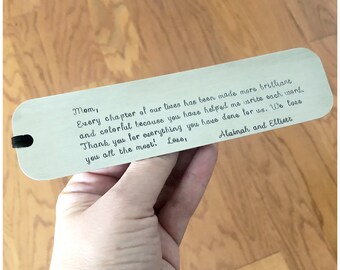 Mom,
Every chapter of our lives has been made more brilliant
and colorful because you have helped me write each word.
Thank you for everything you have done for us. We love
you all the most! Love,
and